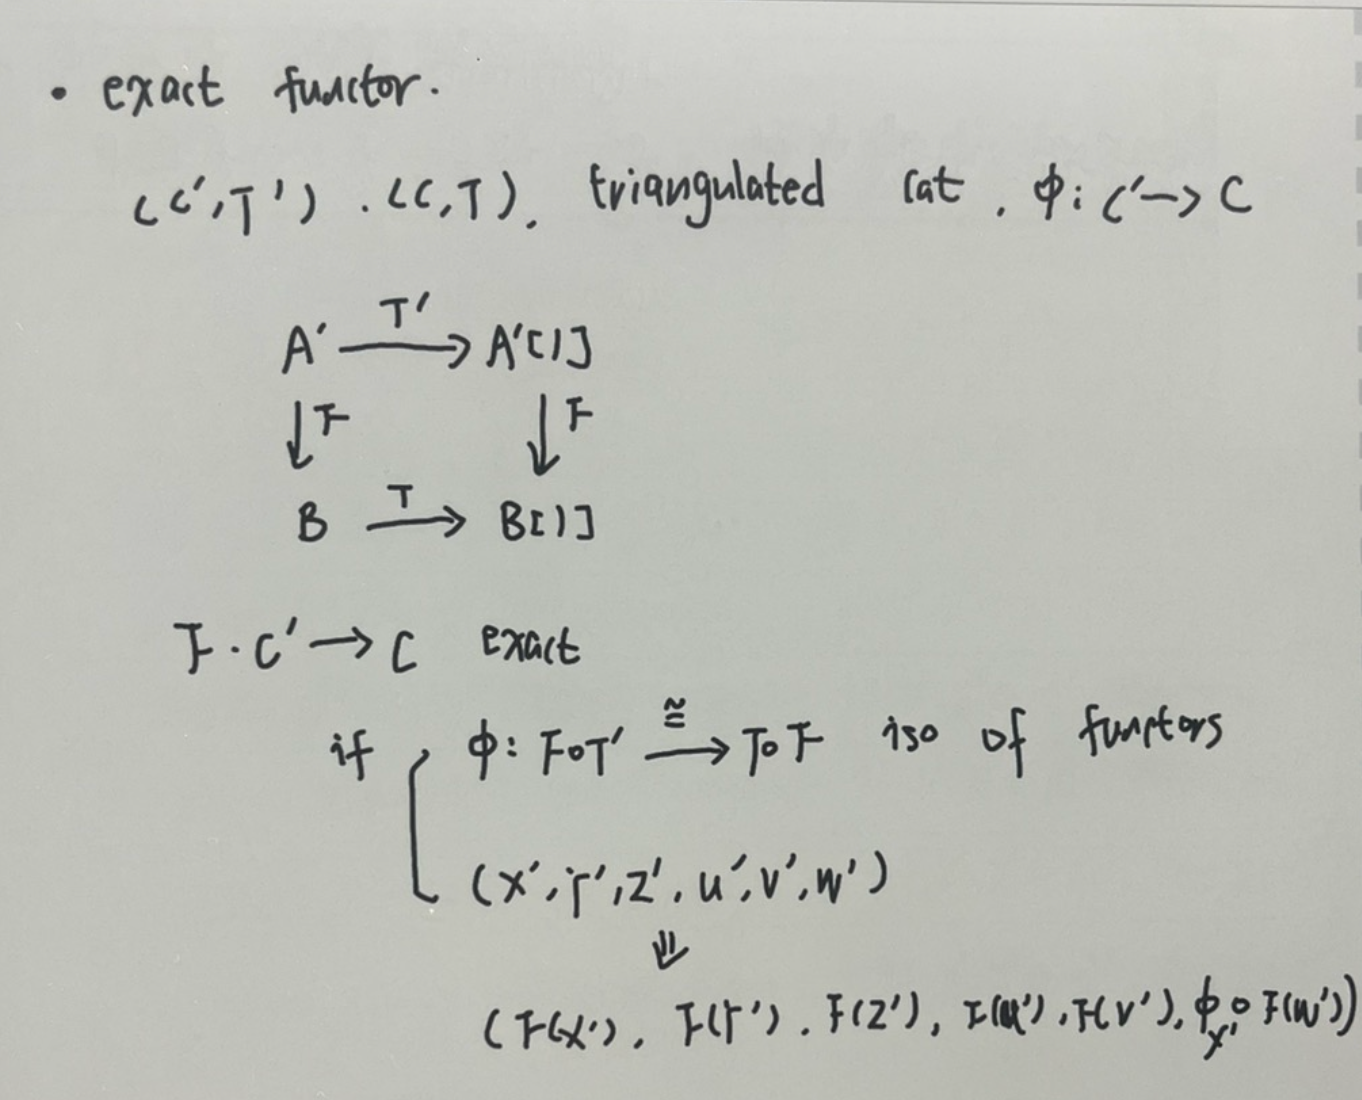 • exact functor.
(C',T') . (C,T). triangulated cat . φ: C' → C
T'
A' → A'[1]
↓ F ↓ F
T
B → B[1]
F . C' → C exact
if φ: F∘T' ≅→ T∘F iso of functors
(X', Y', Z', u', v', w')
⇓
(F(X'), F(Y'). F(Z'), F(u'), F(v'), φ_X' ∘ F(w'))